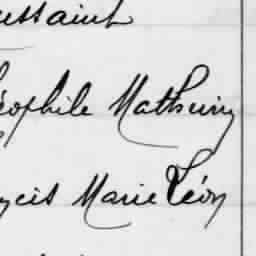 ussaint
éophile Mathurin
nçis Marie Léon